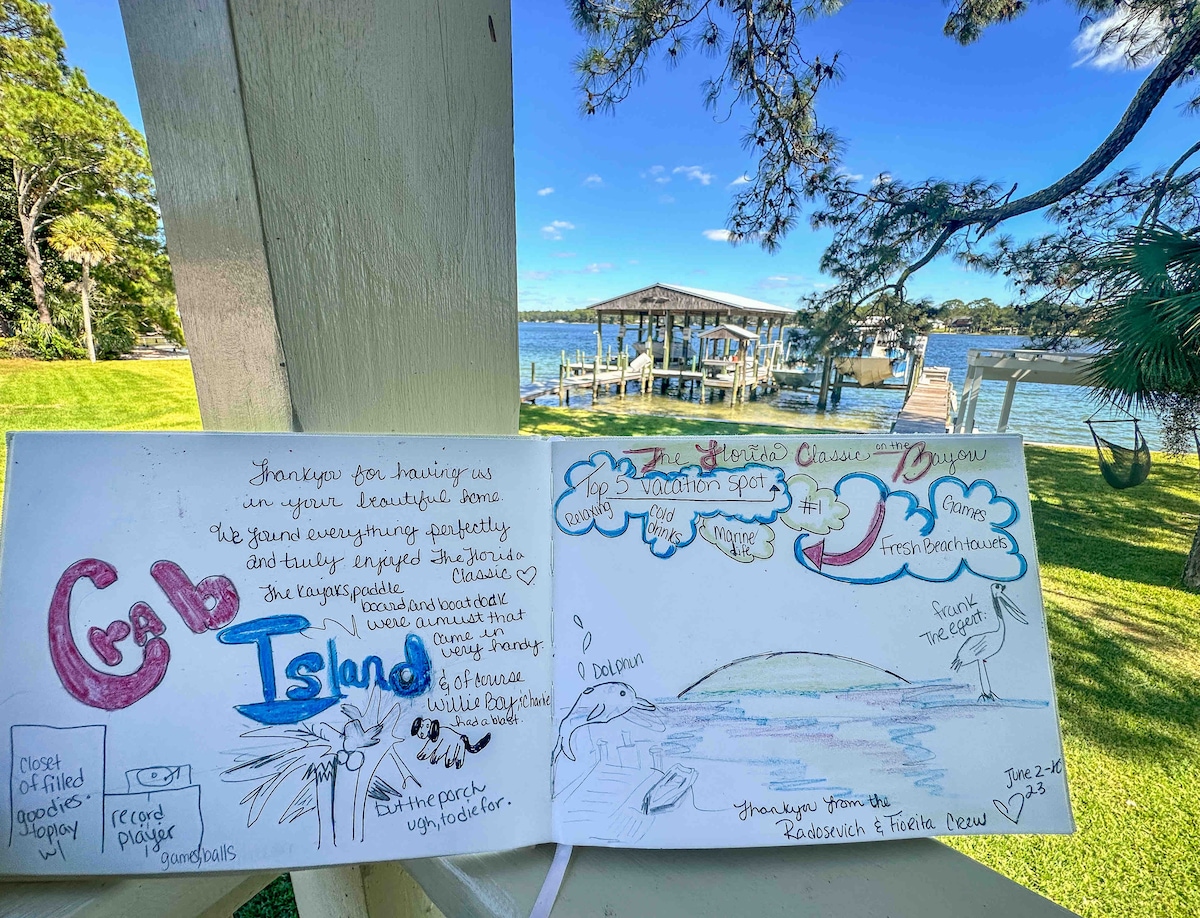 Thankyou for having us
in your beautiful home.
We found everything perfectly
and truly enjoyed The Florida
Classic
The Kayaks, paddle
board, and boat dock
were aimust that
came in
very handy.
& of course
Willie Boy, & Charlie
had a blast.
CRAB
Island
but the porch
ugh, to die for.
Closet
of filled
goodies.
to play
w/
record
player
games, balls
The Florida Classic on the Bayou
Top 5 vacation spot
Relaxing
cold
drinks
Marine
life
#1
Games
Fresh Beach towels
Frank
The egert.
Dolphin
June 2-10
23
Thankyou from the
Radosevich & Fiorita Crew